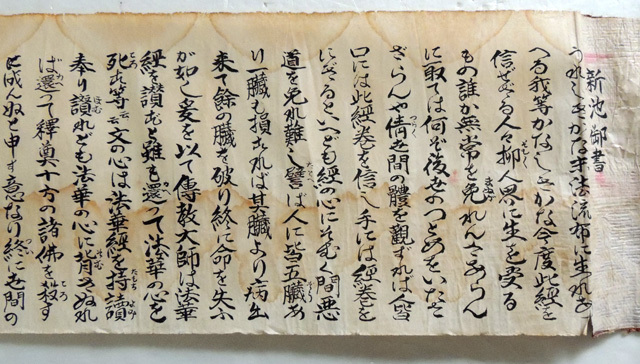 新池御書
うれしきかな末法流布に生れあ
へる我等かなしきかな今度此經を
信ぜざる人々抑人界に生を受る
もの誰か無常を免れんさあらん
に取ては何ぞ後世のつとめをいたさ
ざらんや倩世間の體を觀ずれば人皆
口には此經を信し手には經卷を
にぎるといへども經の心にそむく間惡
道を免れ難し譬は人に皆五臓あ
り一臓も損ずれば其臓より病出
来て餘の臓を破り終に命を失ふ
が如し爰を以て傳教大師は法華
經を讃むと雖も還つて法華の心を
死す等云云文の心は法華經を持讀
奉り讃れども法華の心に背きぬれ
ば還つて釋尊十方の諸佛を殺す
に成んぬと申す意なり終に世間の